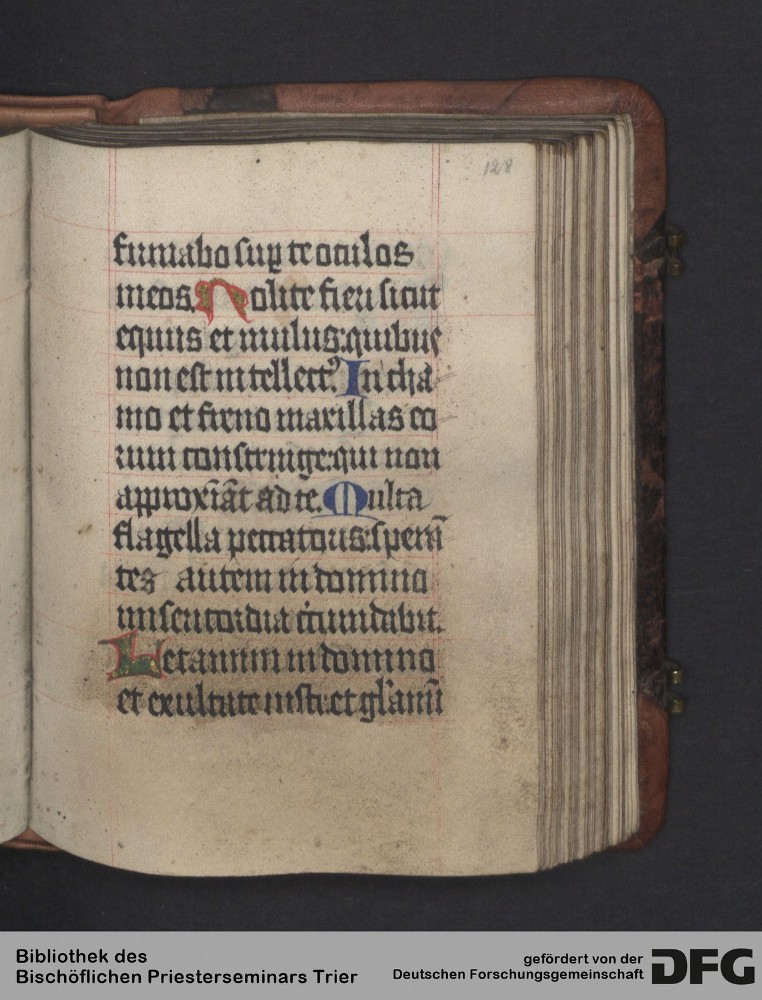 128
firmabo sup̱ te oculos
meos. Nolite fieri sicut
equus et mulus: quibus
non est intellectꝰ. In cha
mo et freno maxillas eo
rum constringe: qui non
approxīāt ad te. Multa
flagella peccatoris: sperā
tes autem in domino
misericordia circumdabit.
Letamini in domino
et exultate iusti: et gl̄amī
Bibliothek des
Bischöflichen Priesterseminars Trier
gefördert von der
Deutschen Forschungsgemeinschaft
DFG